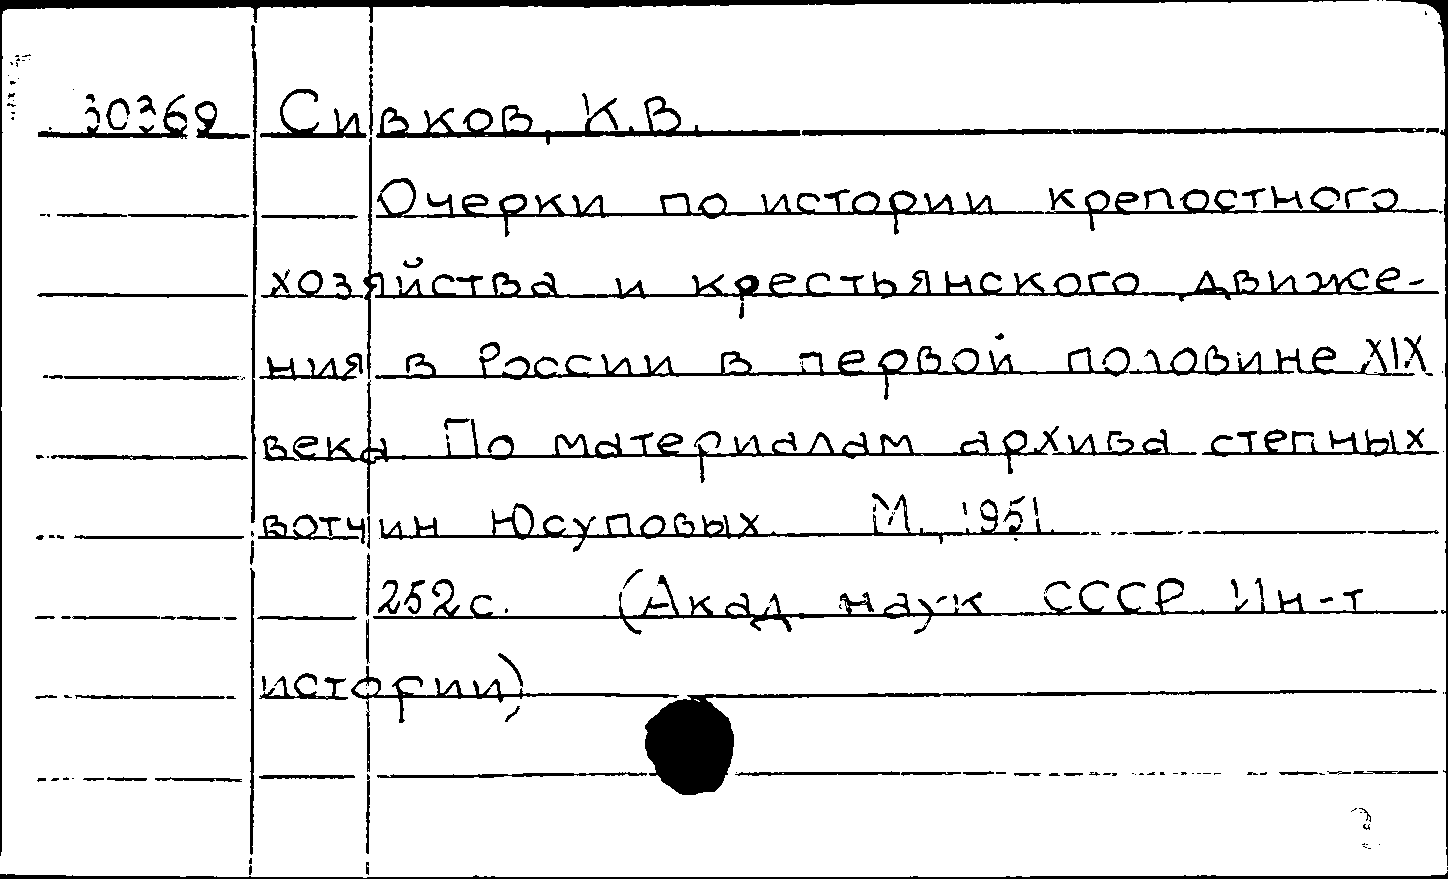 30369 Сивков, К.В.
Очерки по истории крепостного
хозяйства и крестьянского движе-
ния в России в первой половине XIX
века. По материалам архива степных
вотчин Юсуповых. М., 1951.
252с. (Акад. наук СССР. Ин-т
истории)